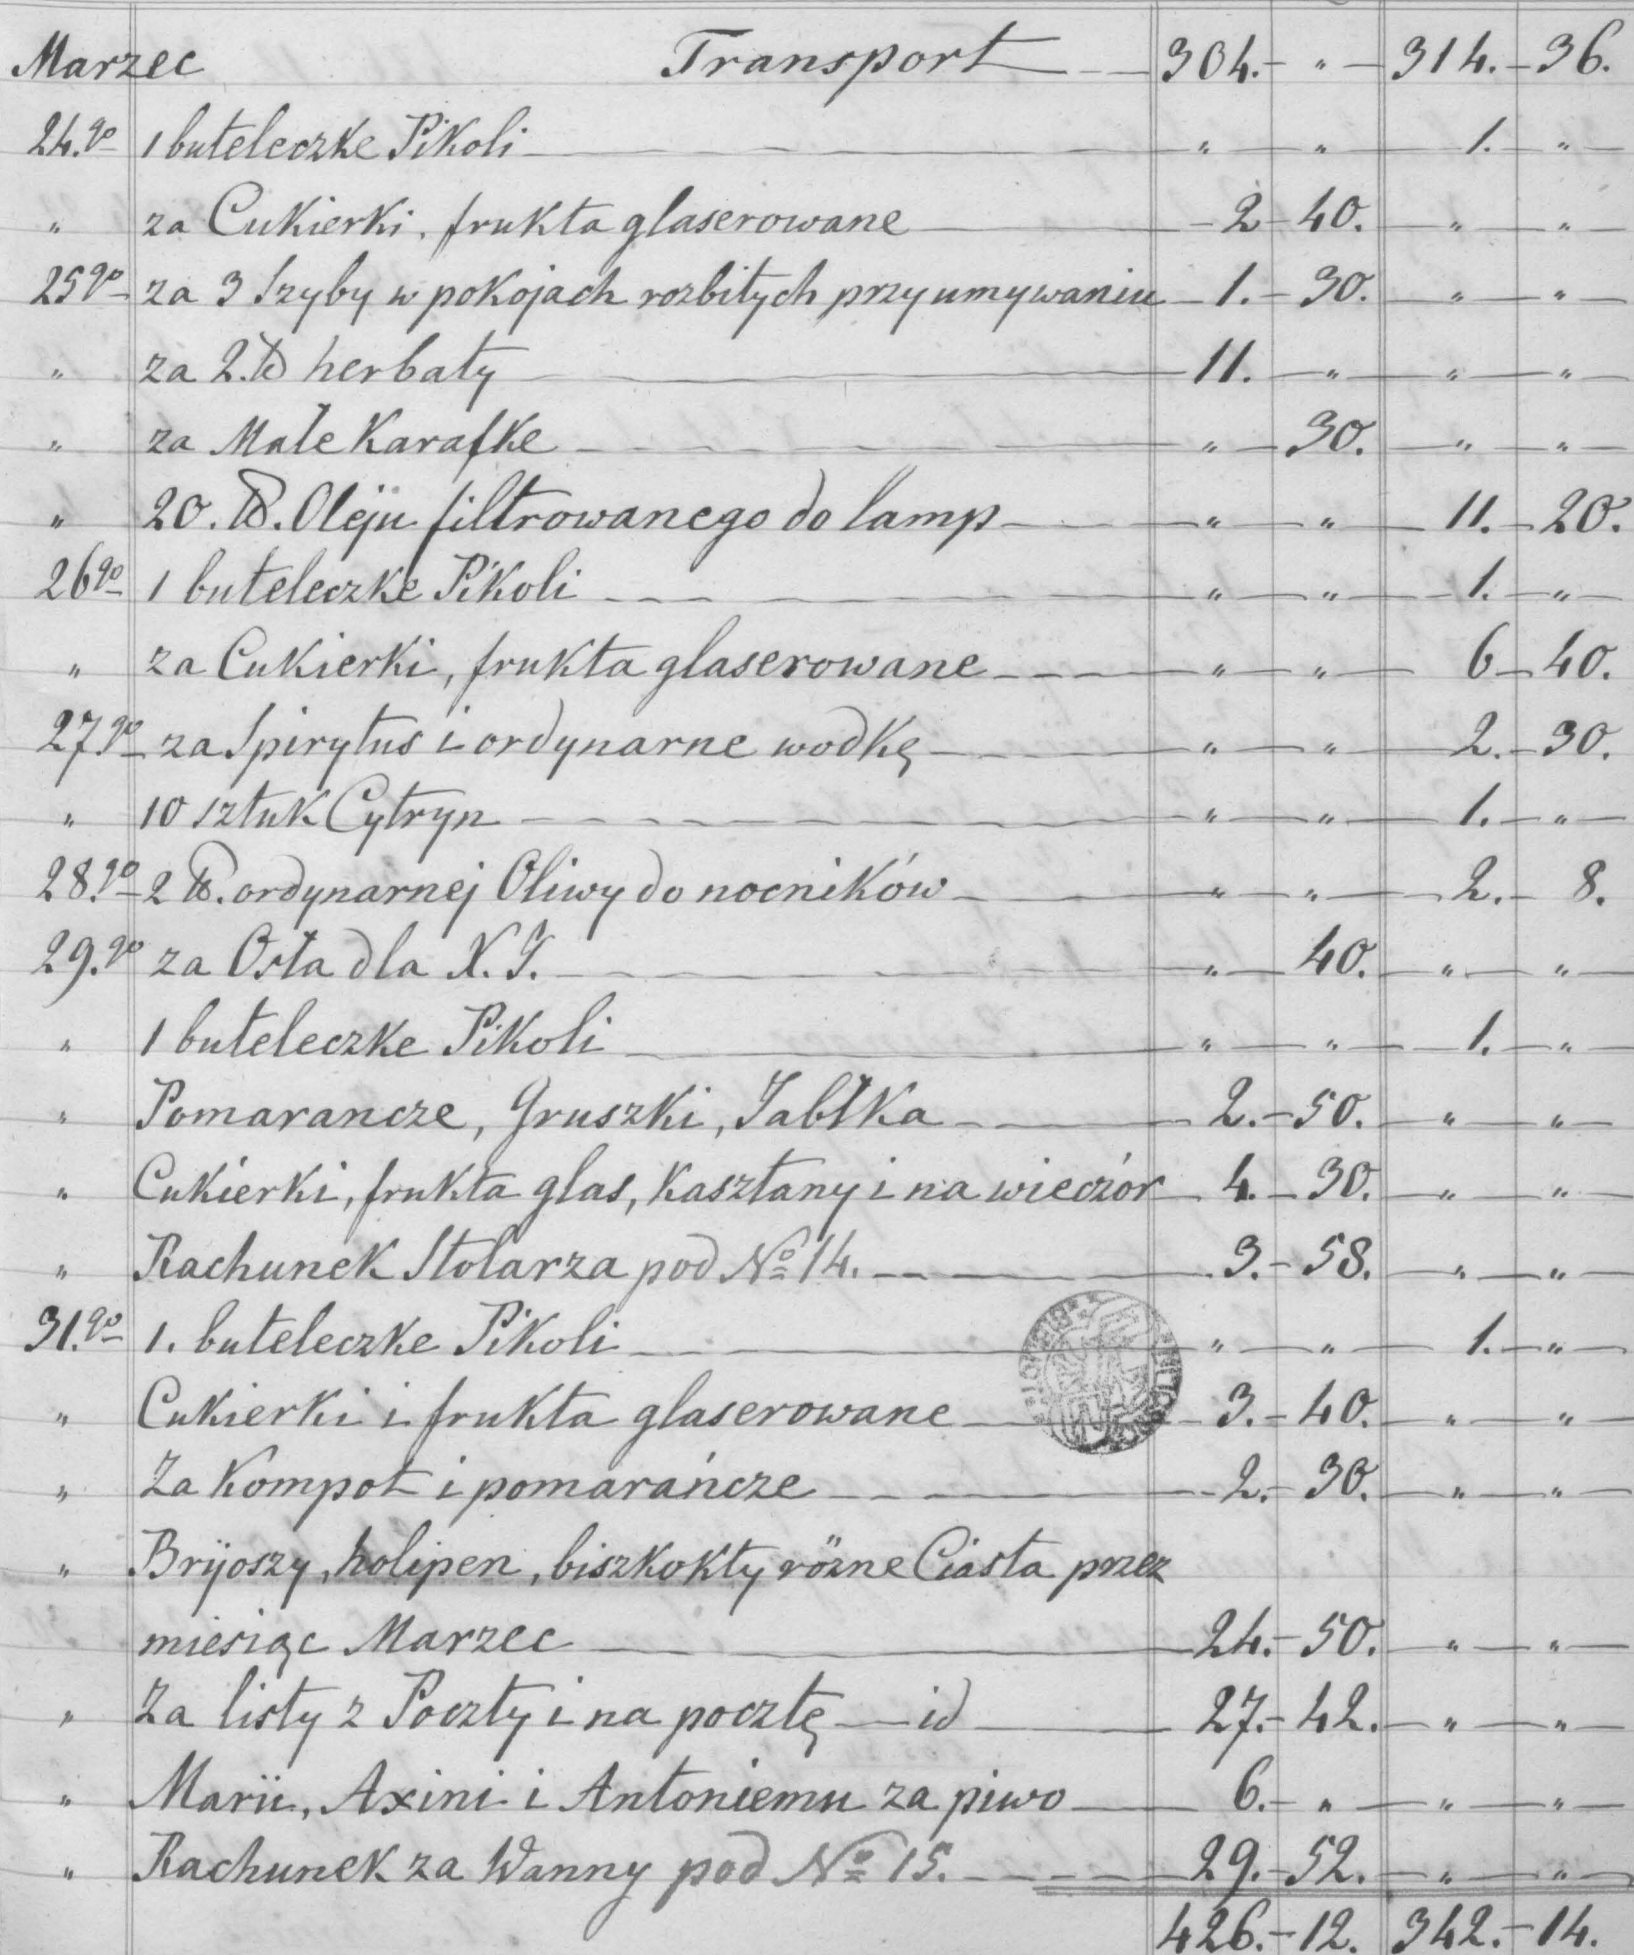 Marzec Transport 304. " 314. 36.
24.go 1 buteleczke Pikoli " " 1. "
" za Cukierki, frukta glaserowane 2 40. " "
25go za 3 Szyby w pokojach rozbitych przy umywaniu 1. 30. " "
" za 2. ℔ herbaty 11. " " "
" za Małe Karafke " 30. " "
" 20. ℔. Oleju filtrowanego do lamp " " 11. 20.
26go 1 buteleczke Pikoli " " 1. "
" za Cukierki, frukta glaserowane " " 6 40.
27.go za Spirytus i ordynarne wodkę " " 2. 30.
" 10 sztuk Cytryn " " 1. "
28.go 2 ℔. ordynarnej Oliwy do nocników " " 2. 8.
29.go za Osła dla X. J. " 40. " "
" 1 buteleczke Pikoli " " 1. "
" Pomarancze, Gruszki, Jabłka 2. 50. " "
" Cukierki, frukta glas, Kasztany i na wieczór 4. 30. " "
" Rachunek Stolarza pod No 14. 3. 58. " "
31.go 1. buteleczke Pikoli " " 1. "
" Cukierki i frukta glaserowane 3. 40. " "
" Za Kompot i pomarańcze 2. 30. " "
" Bryoszy, holipen, biszkokty rözne Ciasta przez
miesiąc Marzec 24. 50. " "
" Za listy z Poczty i na pocztę id 27. 42. " "
" Marii, Axini i Antoniemu za piwo 6. " " "
" Rachunek za Wanny pod No 15. 29. 52. " "
426. 12. 342. 14.